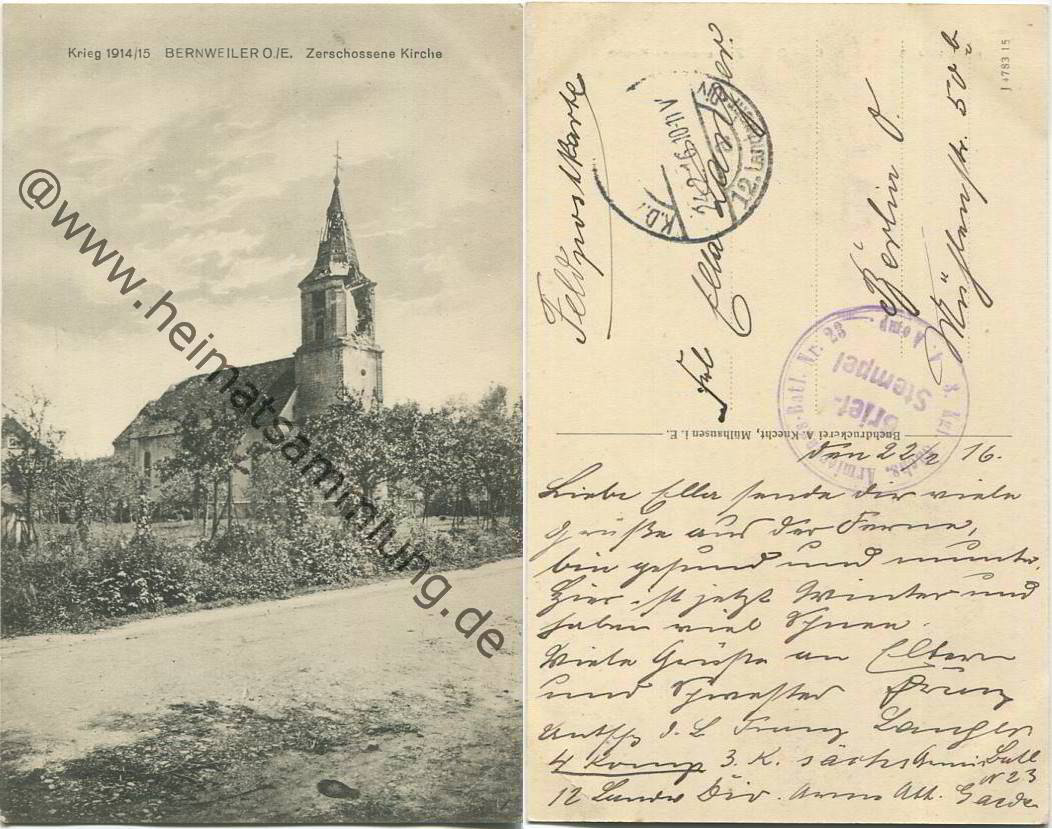 Krieg 1914/15 BERNWEILER O./E. Zerschossene Kirche
@www.heimatsammlung.de
Feldpostkarte
Frl Ella
Berlin O.
50 b
J 4783 15
K.D.
12. Landw. Div.
Batl. Nr. 23
Brief-
Stempel
Buchdruckerei A. Knecht, Mülhausen i. E.
den 22/2 16.
Liebe Ella sende dir viele
Grüße aus der Ferne,
bin gesund und munter.
Hier ist jetzt Winter und
haben viel Schnee.
Viele Grüße an Eltern
und Schwester Franz
d. L Franz
4 Komp 3. K. sächs Armi. Batl
N 23
12 Landw Div. Arme Abt. Gaede